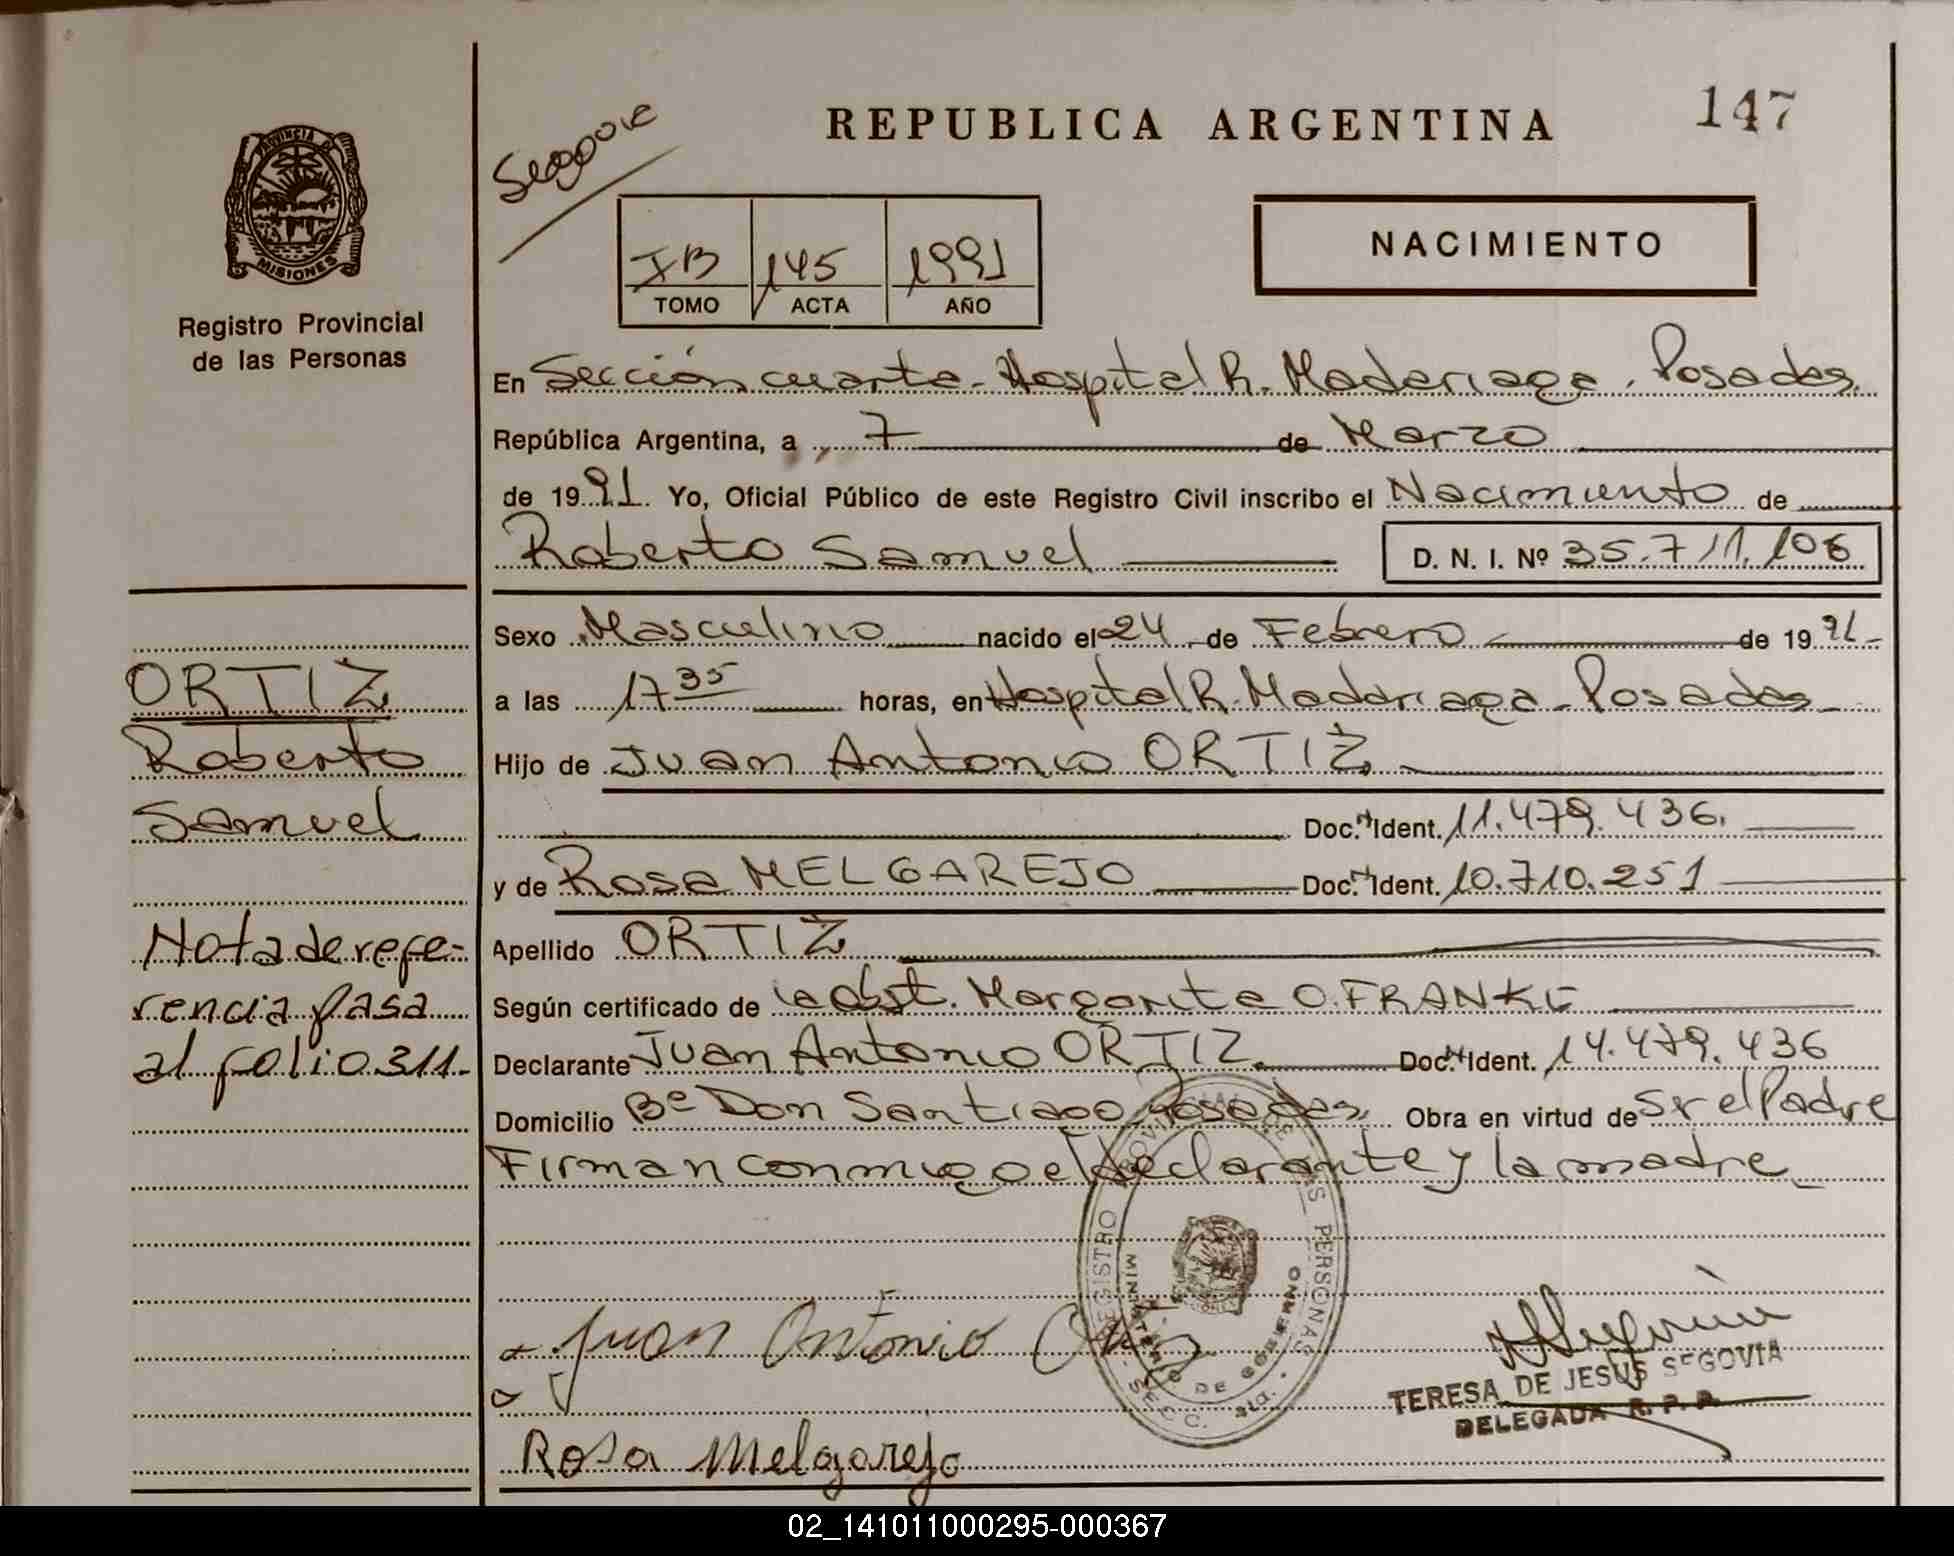 REPUBLICA ARGENTINA
147
PROVINCIA DE
MISIONES
Registro Provincial
de las Personas
IB 145 1991
TOMO ACTA AÑO
NACIMIENTO
En Sección cuarta - Hospital R. Madariaga. Posadas.
República Argentina, a 7 de Marzo
de 1991. Yo, Oficial Público de este Registro Civil inscribo el Nacimiento de
Roberto Samuel D. N. I. Nº 35.711.106
Sexo Masculino nacido el 24 de Febrero de 1991-
a las 17 35 horas, en Hospital R. Madariaga - Posadas
Hijo de Juan Antonio ORTIZ
Doc. Ident. 11.479.436.
y de Rosa MELGAREJO Doc. Ident. 10.710.251
Apellido ORTIZ
Según certificado de la obst. Margarita O. FRANKE
Declarante Juan Antonio ORTIZ Doc. Ident. 14.479.436
Domicilio Bº Don Santiago Posadas. Obra en virtud de Ser el Padre
Firman conmigo el declarante y la madre
ORTIZ
Roberto
Samuel
Nota de refe-
rencia pasa
al folio 311-
Juan Antonio Ortiz
Rosa Melgarejo
REGISTRO PROVINCIAL DE LAS PERSONAS
MINISTERIO DE GOBIERNO
SECC. 4ta.
TERESA DE JESUS SEGOVIA
DELEGADA R. P. P.
02_141011000295-000367